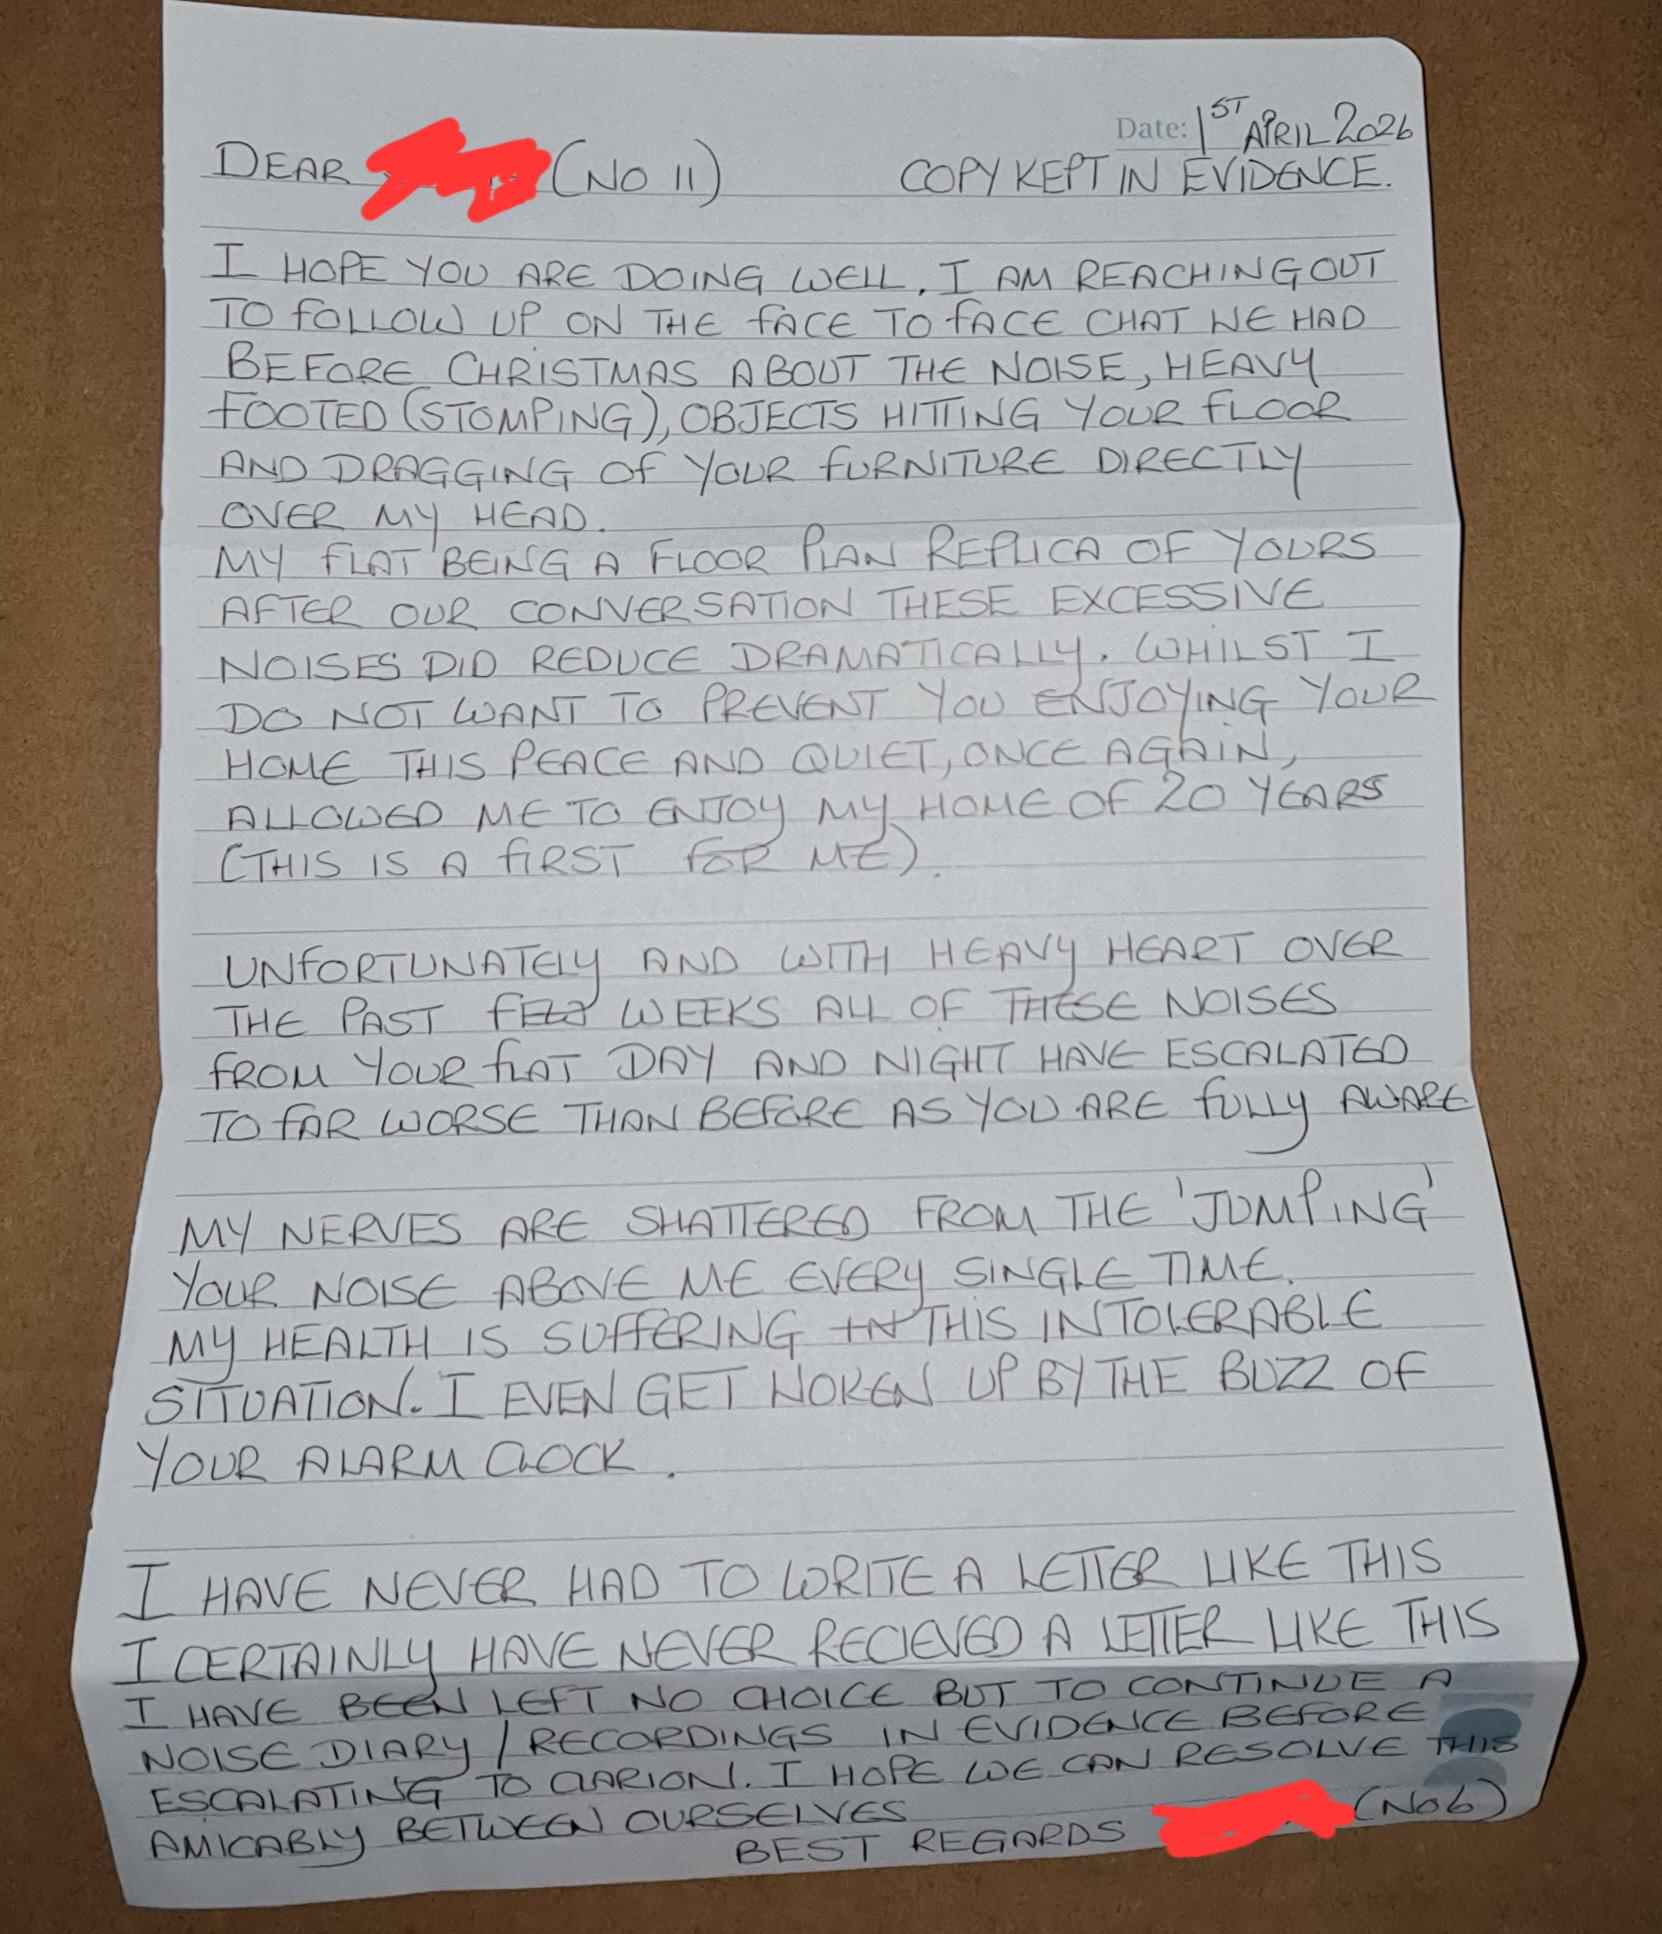 Date: 1ST APRIL 2026
DEAR (NO 11) COPY KEPT IN EVIDENCE.
I HOPE YOU ARE DOING WELL. I AM REACHING OUT
TO FOLLOW UP ON THE FACE TO FACE CHAT WE HAD
BEFORE CHRISTMAS ABOUT THE NOISE, HEAVY
FOOTED (STOMPING), OBJECTS HITTING YOUR FLOOR
AND DRAGGING OF YOUR FURNITURE DIRECTLY
OVER MY HEAD.
MY FLAT BEING A FLOOR PLAN REPLICA OF YOURS
AFTER OUR CONVERSATION THESE EXCESSIVE
NOISES DID REDUCE DRAMATICALLY. WHILST I
DO NOT WANT TO PREVENT YOU ENJOYING YOUR
HOME THIS PEACE AND QUIET, ONCE AGAIN,
ALLOWED ME TO ENJOY MY HOME OF 20 YEARS
(THIS IS A FIRST FOR ME).
UNFORTUNATELY AND WITH HEAVY HEART OVER
THE PAST FEW WEEKS ALL OF THESE NOISES
FROM YOUR FLAT DAY AND NIGHT HAVE ESCALATED
TO FAR WORSE THAN BEFORE AS YOU ARE FULLY AWARE
MY NERVES ARE SHATTERED FROM THE 'JUMPING'
YOUR NOISE ABOVE ME EVERY SINGLE TIME.
MY HEALTH IS SUFFERING IN THIS INTOLERABLE
SITUATION. I EVEN GET WOKEN UP BY THE BUZZ OF
YOUR ALARM CLOCK.
I HAVE NEVER HAD TO WRITE A LETTER LIKE THIS
I CERTAINLY HAVE NEVER RECIEVED A LETTER LIKE THIS
I HAVE BEEN LEFT NO CHOICE BUT TO CONTINUE A
NOISE DIARY / RECORDINGS IN EVIDENCE BEFORE
ESCALATING TO CLARION. I HOPE WE CAN RESOLVE THIS
AMICABLY BETWEEN OURSELVES
BEST REGARDS (NO6)